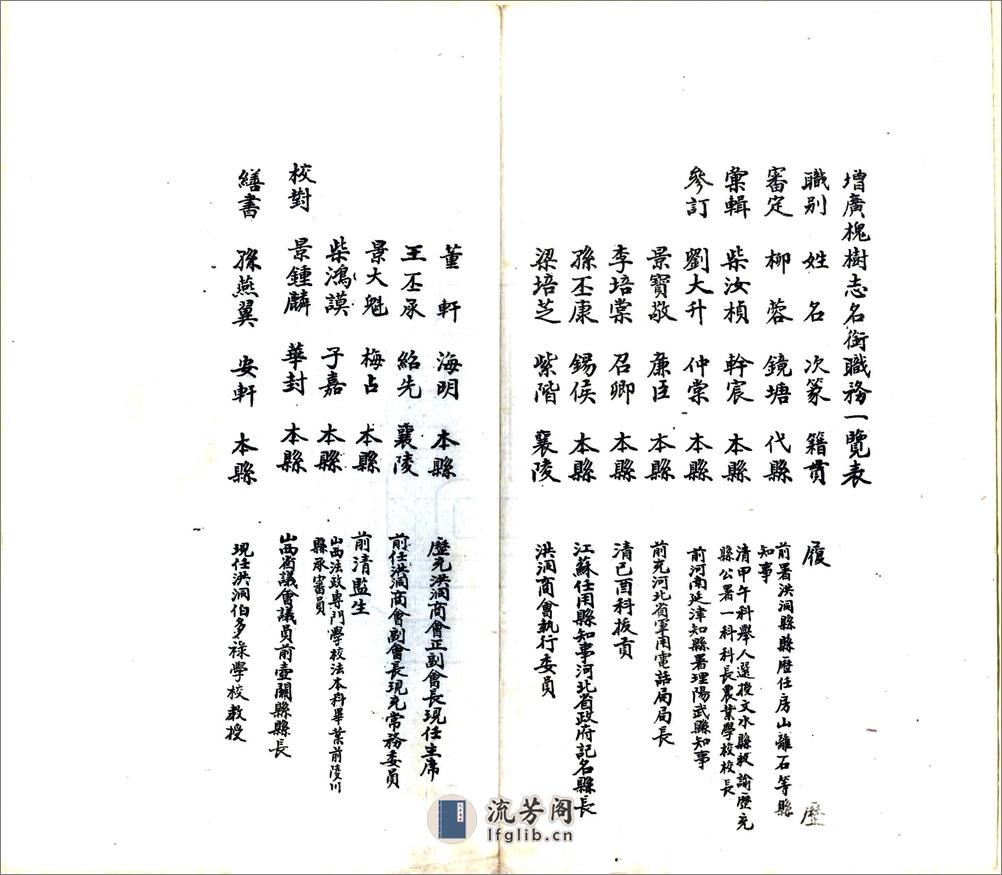 增廣槐樹志名銜職務一覽表
職別 姓名 次篆 籍貫 履歷
審定 柳蓉 鏡塘 代縣 前署洪洞縣縣歷任房山離石等縣
知事
彙輯 柴汝楨 幹宸 本縣 清甲午科舉人選授文水縣教諭歷充
縣公署一科科長農業學校校長
參訂 劉大升 仲棠 本縣 前河南延津知縣署理陽武縣知事
景寶敬 廉臣 本縣 前充河北省軍用電話局局長
李培棠 召卿 本縣 清己酉科拔貢
孫丕康 錫侯 本縣 江蘇任用縣知事河北省政府記名縣長
梁培芝 紫階 襄陵 洪洞商會執行委員
董軒 海明 本縣 歷充洪洞商會正副會長現任主席
王丕承 紹先 襄陵 前任洪洞商會副會長現充常務委員
景大魁 梅占 本縣 前清監生
柴鴻謨 子嘉 本縣 山西法政專門學校法本科畢業前陵川
縣承審員
校對 景鍾麟 華封 本縣 山西省議會議員前壺關縣縣長
繕書 孫燕翼 安軒 本縣 現任洪洞伯多祿學校教授
流芳阁
lfglib.cn